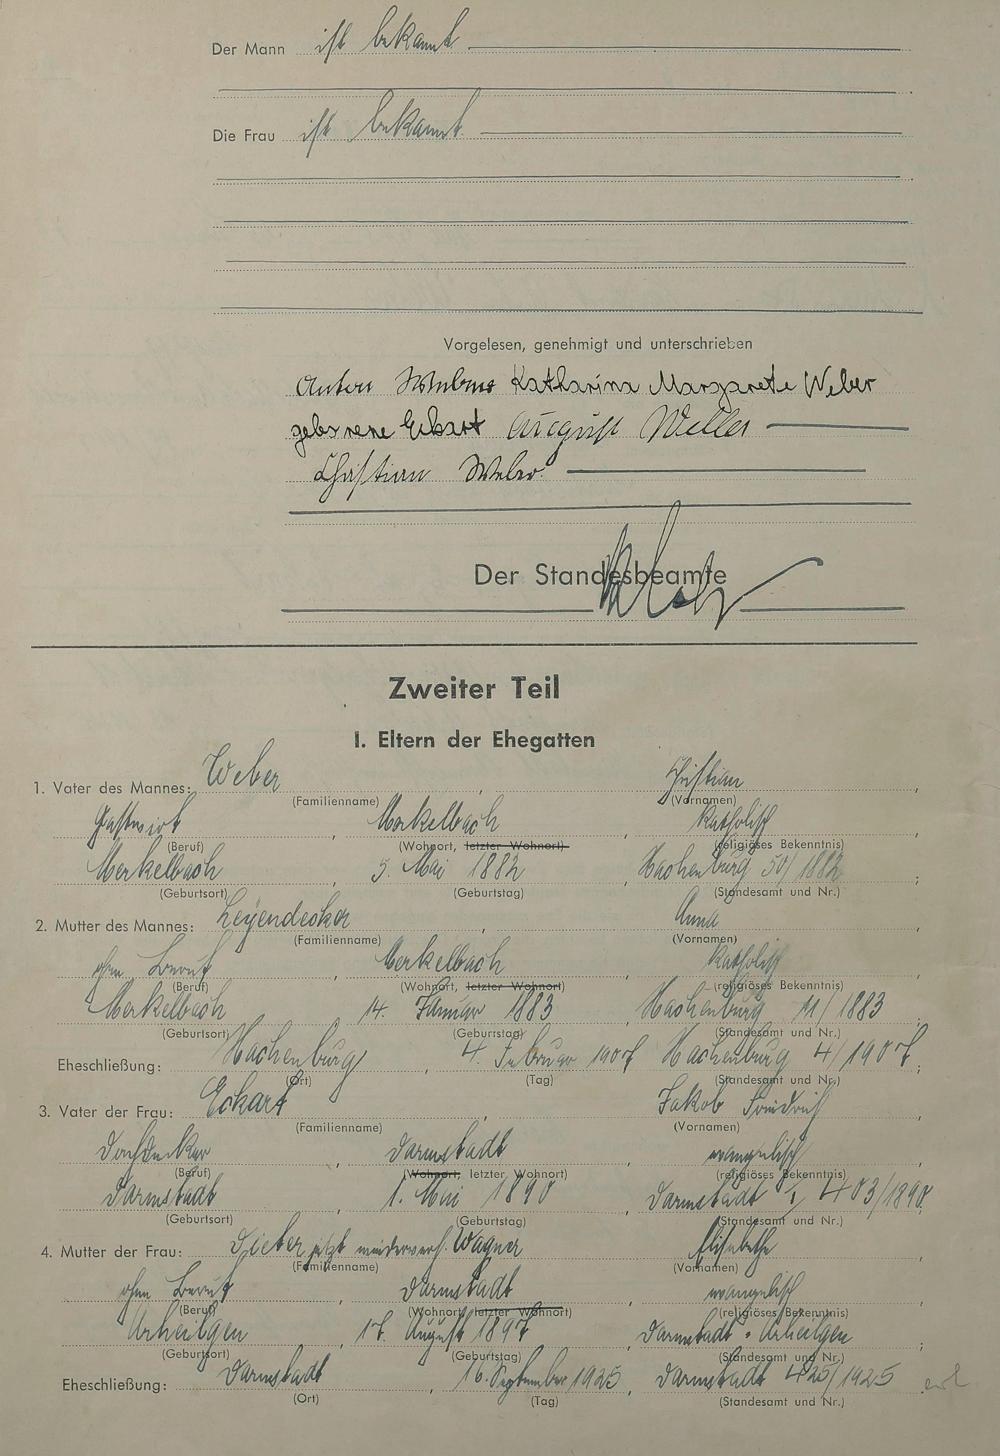 Der Mann ist bekannt
Die Frau ist bekannt
Vorgelesen, genehmigt und unterschrieben
Anton Weber Katharina Margarete Weber
geborene Eckart August Weller
Christian Weber
Der Standesbeamte
Zweiter Teil
I. Eltern der Ehegatten
1. Vater des Mannes: Weber , Christian ,
(Familienname) (Vornamen)
Gastwirt , Merkelbach , katholisch ,
(Beruf) (Wohnort, letzter Wohnort) (religiöses Bekenntnis)
Merkelbach , 5. Mai 1882 , Hachenburg 50/1882 ;
(Geburtsort) (Geburtstag) (Standesamt und Nr.)
2. Mutter des Mannes: Leyendecker , Anna ,
(Familienname) (Vornamen)
ohne Beruf , Merkelbach , katholisch ,
(Beruf) (Wohnort, letzter Wohnort) (religiöses Bekenntnis)
Merkelbach , 14. Januar 1883 , Hachenburg 11/1883 ;
(Geburtsort) (Geburtstag) (Standesamt und Nr.)
Eheschließung: Hachenburg , 4. Februar 1907 , Hachenburg 4/1907 ;
(Ort) (Tag) (Standesamt und Nr.)
3. Vater der Frau: Eckart , Jakob Friedrich ,
(Familienname) (Vornamen)
Dachdecker , Darmstadt , evangelisch ,
(Beruf) (Wohnort, letzter Wohnort) (religiöses Bekenntnis)
Darmstadt , 1. Mai 1890 , Darmstadt 403/1890 ;
(Geburtsort) (Geburtstag) (Standesamt und Nr.)
4. Mutter der Frau: jetzt wiederverh. Wagner , Elisabethe ,
(Familienname) (Vornamen)
ohne Beruf , Darmstadt , evangelisch ,
(Beruf) (Wohnort, letzter Wohnort) (religiöses Bekenntnis)
Arheilgen , 17. August 1897 , Darmstadt - Arheilgen ;
(Geburtsort) (Geburtstag) (Standesamt und Nr.)
Eheschließung: Darmstadt , 16. September 1925 , Darmstadt 425/1925
(Ort) (Tag) (Standesamt und Nr.)